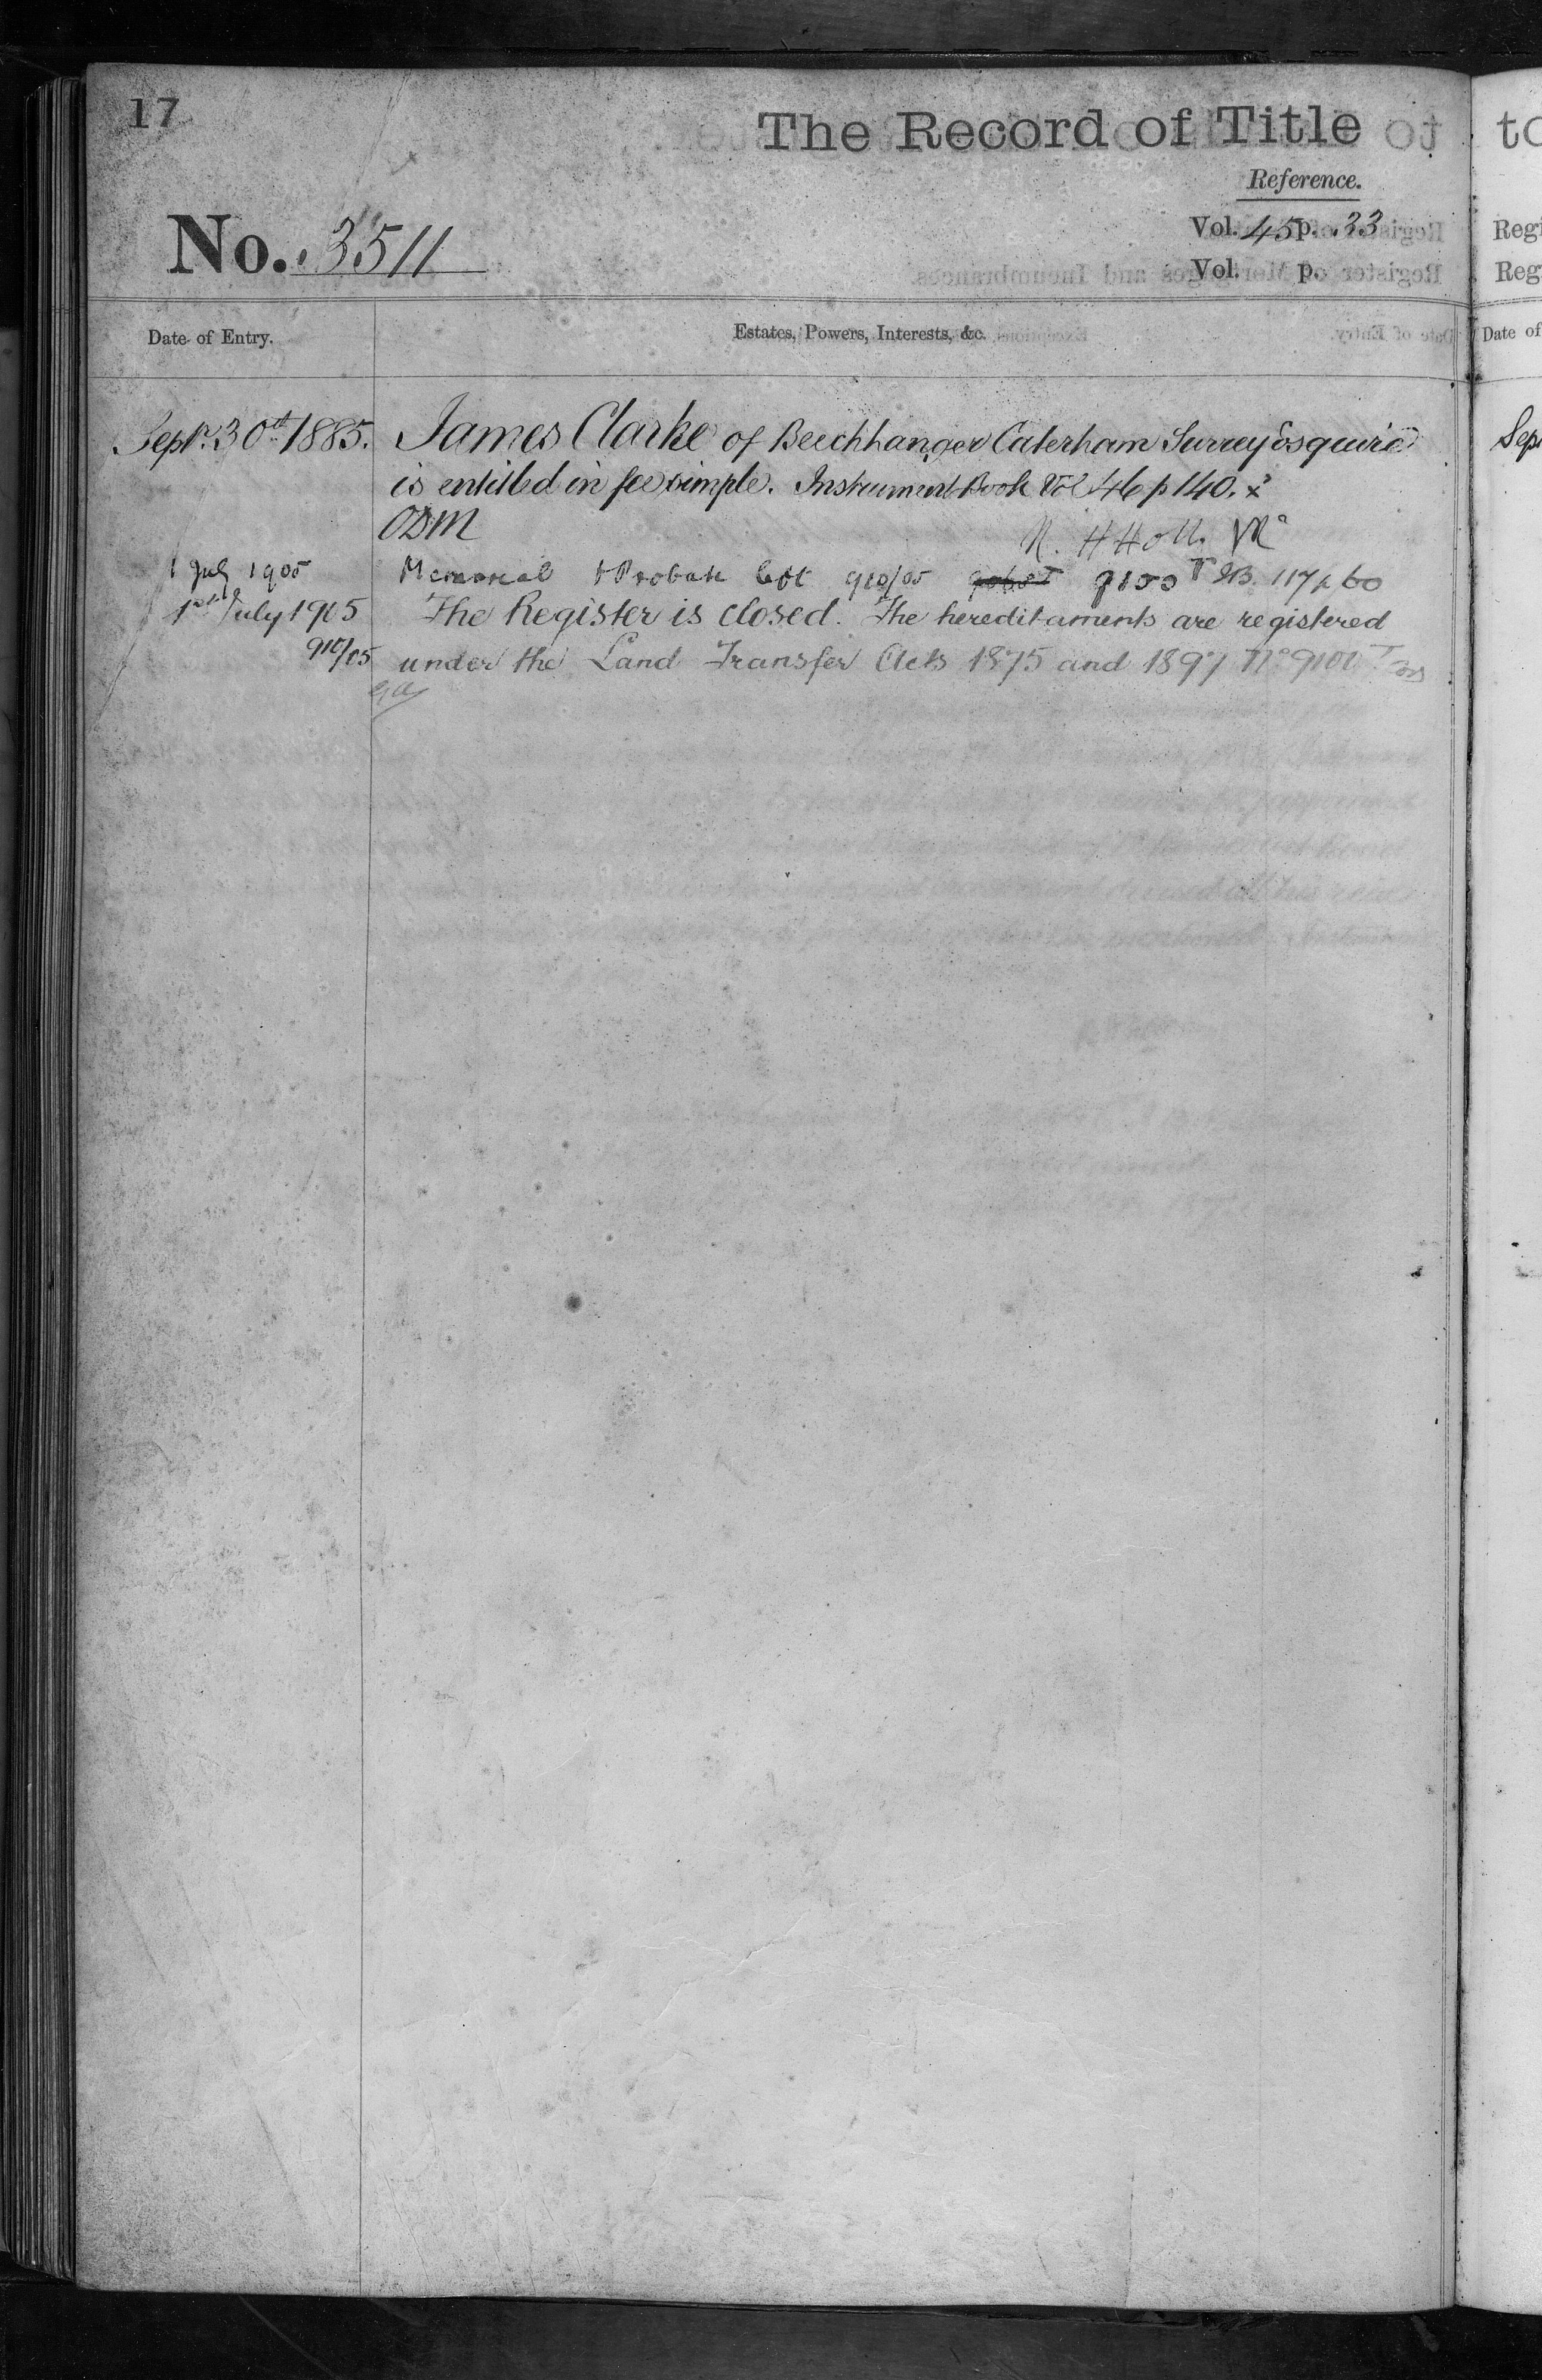 17
The Record of Title
Reference.
No. 3511
Vol. 45 p. 33
Vol. p.
Date of Entry.
Estates, Powers, Interests, &c.
Sept. 30th 1885. James Clarke of Beechhanger Caterham Surrey Esquire
is entitled in fee simple. Instrument Book Vol 46 p 140.
ODM
R. H Holt.
1 July 1905 Memorial & Probate 910/05 9100 T IB. 117 p 60
1st July 1905 The Register is closed. The hereditaments are registered
910/05 under the Land Transfer Acts 1875 and 1897 No 9100 T
to
Regi
Reg
Date of
Sep